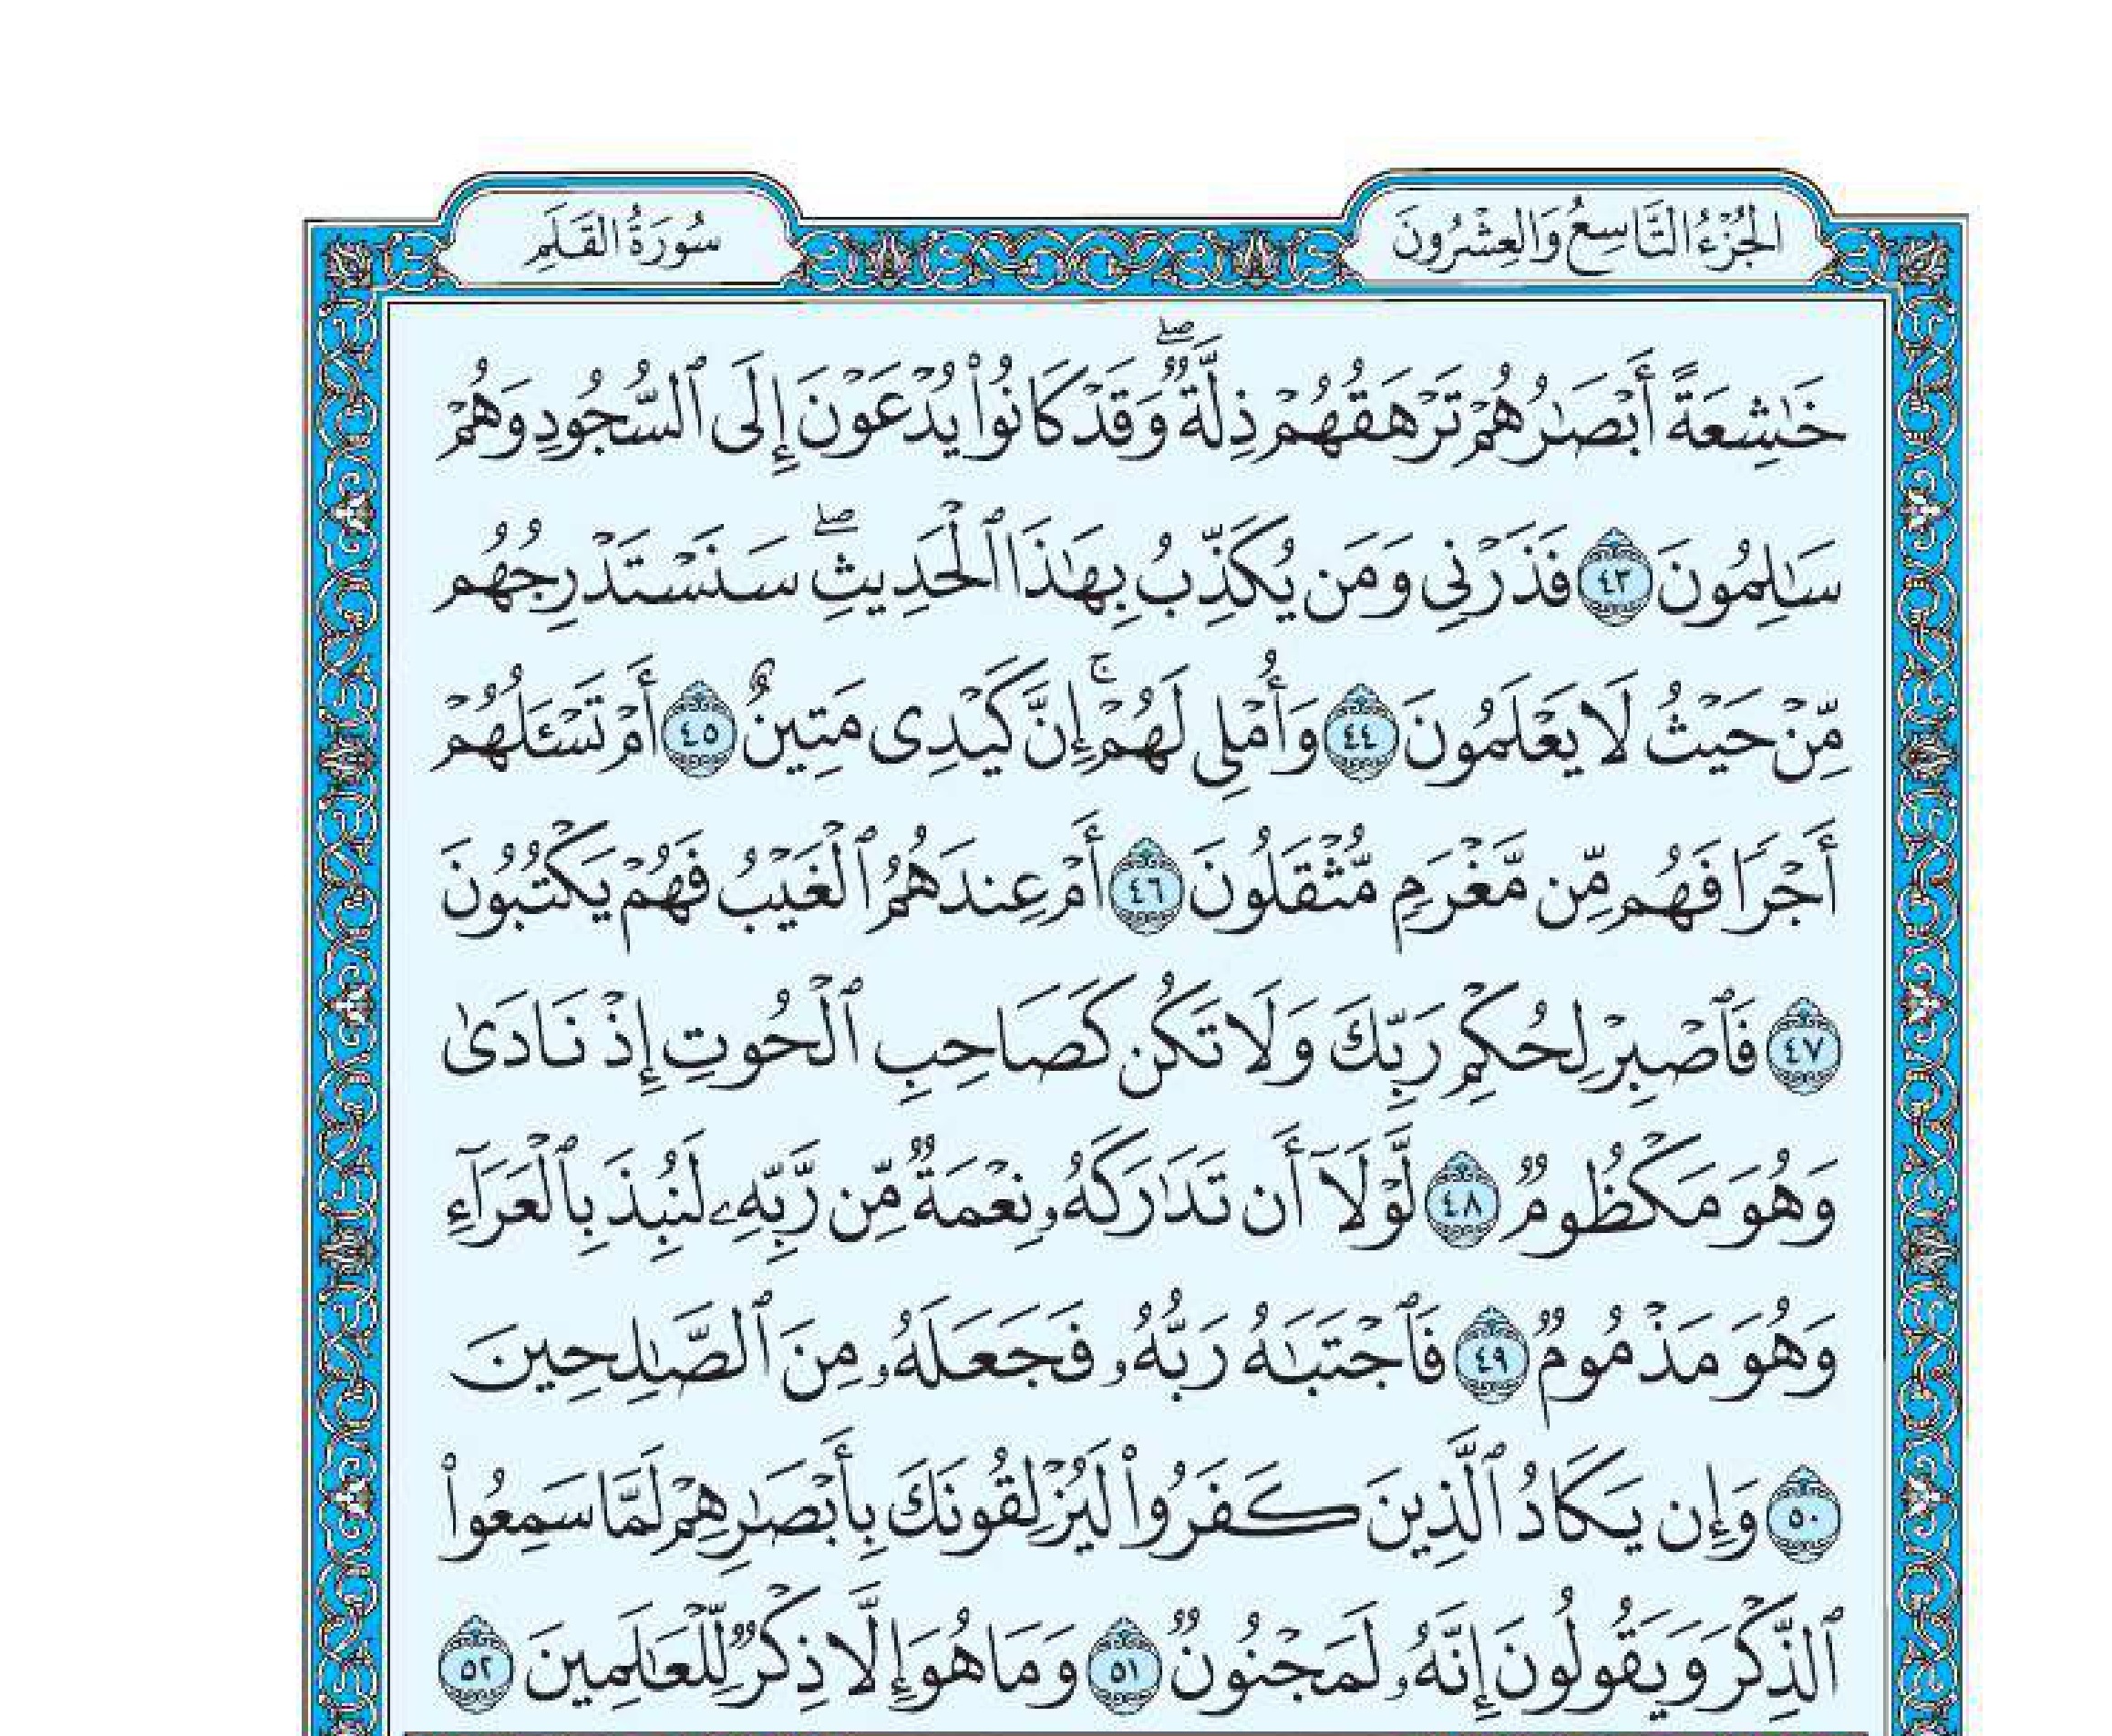 الجُزْءُ التَّاسِعُ وَالعِشْرُونَ
سُورَةُ القَلَمِ
خَٰشِعَةً أَبْصَٰرُهُمْ تَرْهَقُهُمْ ذِلَّةٌ ۖ وَقَدْ كَانُوا۟ يُدْعَوْنَ إِلَى ٱلسُّجُودِ وَهُمْ
سَٰلِمُونَ ٤٣ فَذَرْنِى وَمَن يُكَذِّبُ بِهَٰذَا ٱلْحَدِيثِ ۖ سَنَسْتَدْرِجُهُم
مِّنْ حَيْثُ لَا يَعْلَمُونَ ٤٤ وَأُمْلِى لَهُمْ ۚ إِنَّ كَيْدِى مَتِينٌ ٤٥ أَمْ تَسْـَٔلُهُمْ
أَجْرًا فَهُم مِّن مَّغْرَمٍ مُّثْقَلُونَ ٤٦ أَمْ عِندَهُمُ ٱلْغَيْبُ فَهُمْ يَكْتُبُونَ
٤٧ فَٱصْبِرْ لِحُكْمِ رَبِّكَ وَلَا تَكُن كَصَاحِبِ ٱلْحُوتِ إِذْ نَادَىٰ
وَهُوَ مَكْظُومٌ ٤٨ لَّوْلَآ أَن تَدَٰرَكَهُۥ نِعْمَةٌ مِّن رَّبِّهِۦ لَنُبِذَ بِٱلْعَرَآءِ
وَهُوَ مَذْمُومٌ ٤٩ فَٱجْتَبَٰهُ رَبُّهُۥ فَجَعَلَهُۥ مِنَ ٱلصَّٰلِحِينَ
٥٠ وَإِن يَكَادُ ٱلَّذِينَ كَفَرُوا۟ لَيُزْلِقُونَكَ بِأَبْصَٰرِهِمْ لَمَّا سَمِعُوا۟
ٱلذِّكْرَ وَيَقُولُونَ إِنَّهُۥ لَمَجْنُونٌ ٥١ وَمَا هُوَ إِلَّا ذِكْرٌ لِّلْعَٰلَمِينَ ٥٢